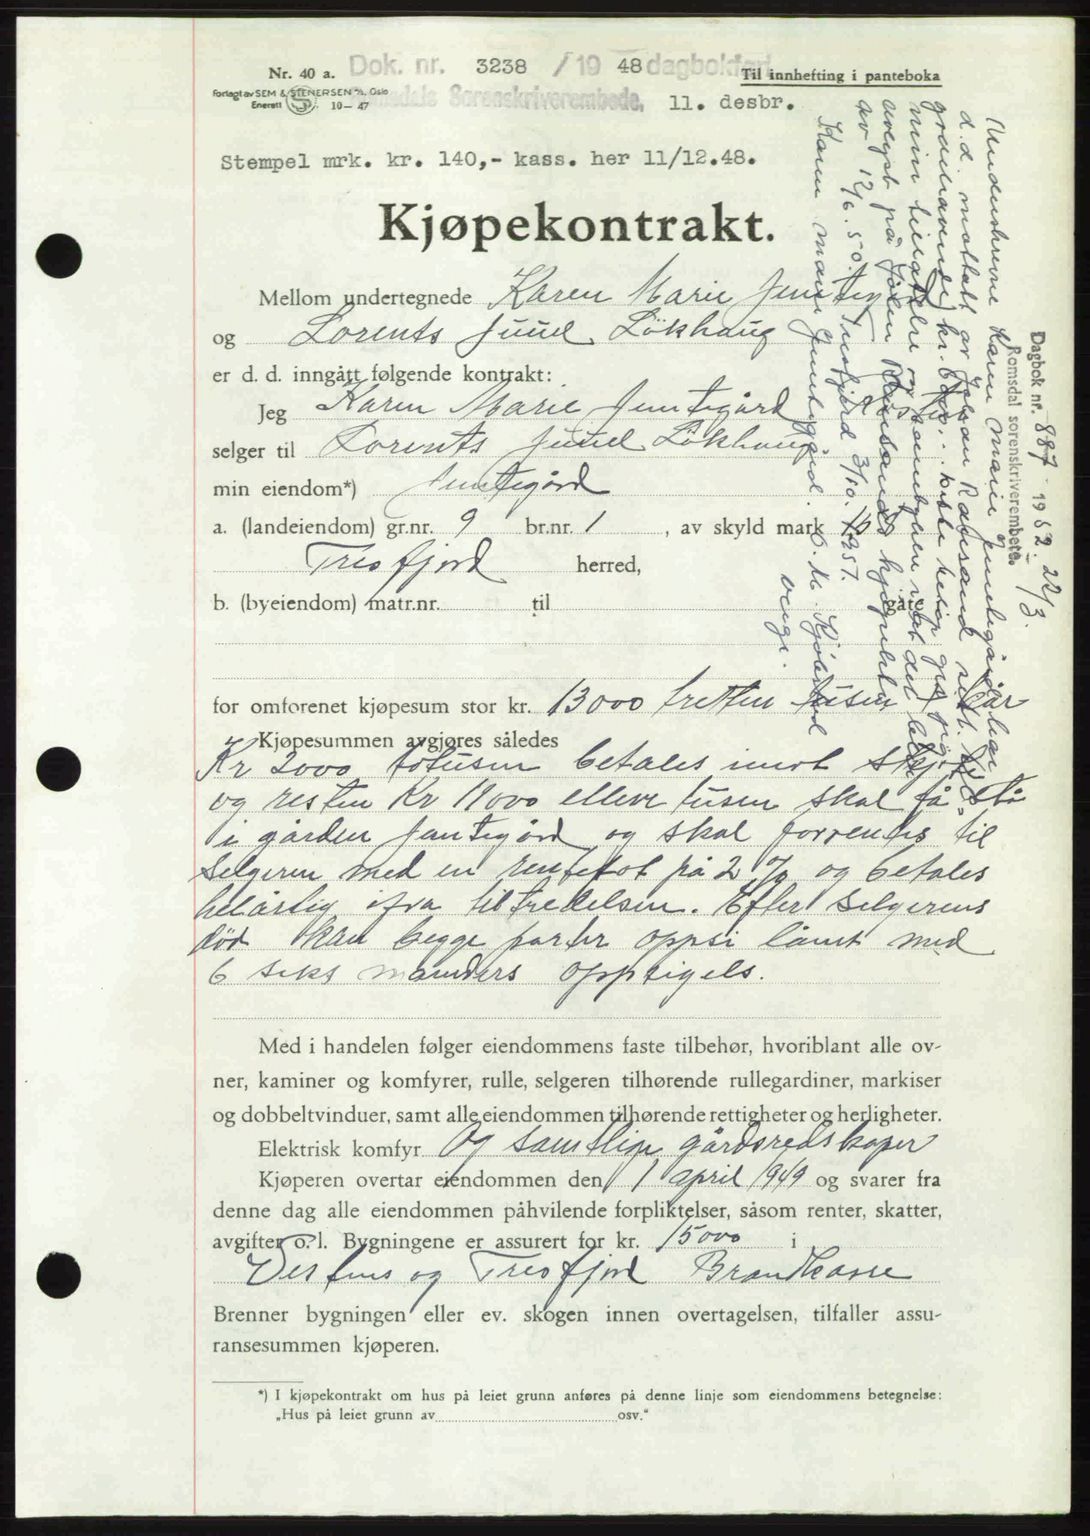 Nr. 40 a.
Forlagt av SEM & STENERSEN A/S, Oslo
Enerett 10-47
Dok. nr. 3238 / 19 48 dagbokført
Sorenskriverembede, 11. desbr.
Til innhefting i panteboka
Stempel mrk. kr. 140,- kass. her 11/12.48.
Kjøpekontrakt.
Mellom undertegnede Karen Marie
og Lorents Juul Løkhaug
er d. d. inngått følgende kontrakt:
Jeg Karen Marie Jemtegård
selger til Lorents Juul Løkhaug
min eiendom*) Jemtegård
a. (landeiendom) gr.nr. 9 br.nr. 1 , av skyld mark
Tresfjord herred,
b. (byeiendom) matr.nr. til gate
for omforenet kjøpesum stor kr. 13000 tretten tusen
Kjøpesummen avgjøres således
Kr 2000 totusen betales imot
og resten Kr 11000 elleve tusen skal få stå
i gården Jemtegård og skal forrentes til
selgeren med en rentefot på 2 % og betales
helårlig ifra tiltredelsen. Efter selgerens
død kan begge parter oppsi lånet med
6 seks manders oppsigels.
Med i handelen følger eiendommens faste tilbehør, hvoriblant alle ov-
ner, kaminer og komfyrer, rulle, selgeren tilhørende rullegardiner, markiser
og dobbeltvinduer, samt alle eiendommen tilhørende rettigheter og herligheter.
Elektrisk komfyr Og samtlige gårdsredskaper
Kjøperen overtar eiendommen den 1 april 1949 og svarer fra
denne dag alle eiendommen påhvilende forpliktelser, såsom renter, skatter,
avgifter o. l. Bygningene er assurert for kr. 15000 i
Vestnes og Tresfjord Brandkasse
Brenner bygningen eller ev. skogen innen overtagelsen, tilfaller assu-
ransesummen kjøperen.
*) I kjøpekontrakt om hus på leiet grunn anføres på denne linje som eiendommens betegnelse:
„Hus på leiet grunn av osv."
Dagbok nr. 887 - 1952 22/3.
Romsdal sorenskriverembete
Undertegnede Karen Marie Jemtegård har
d. d. mottatt av
av 12/6. 50. Tresfjord 3/10. 1951.
Karen Marie Jemtegård.